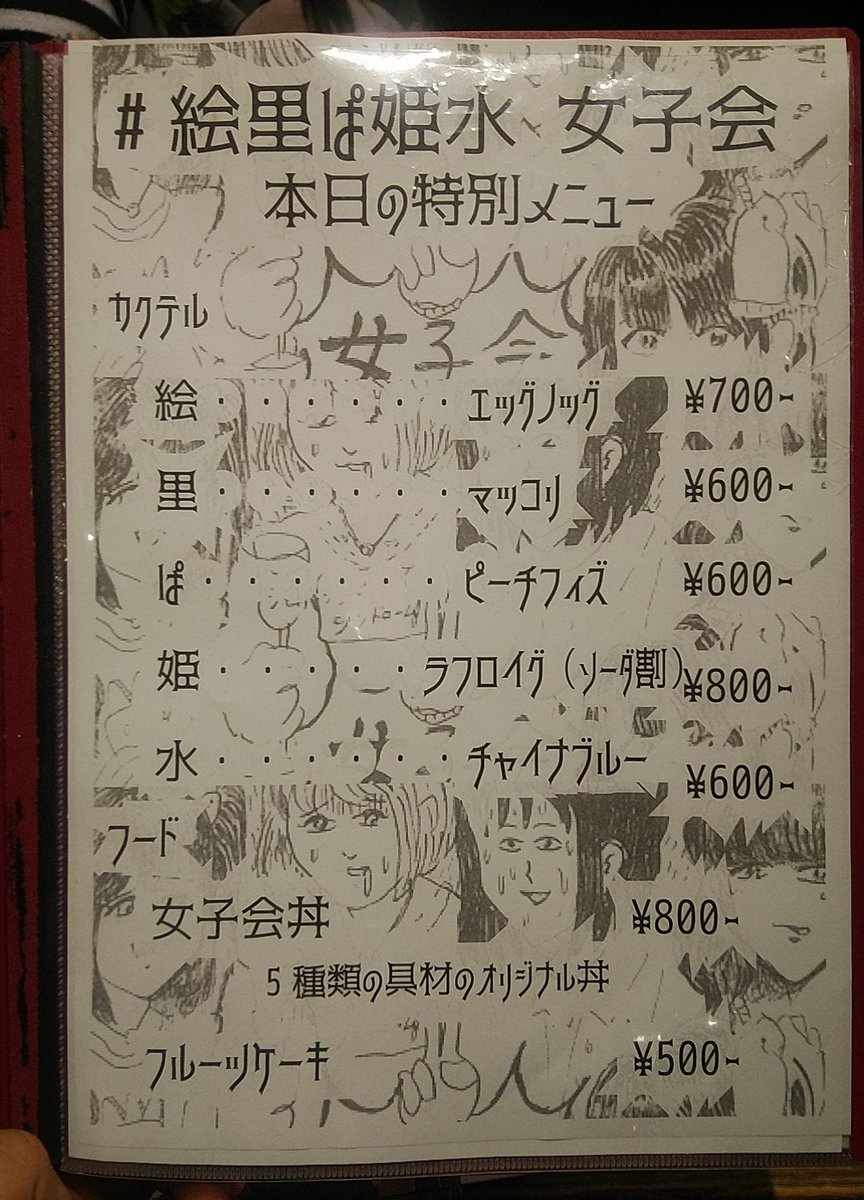 # 絵里ぱ姫水 女子会
本日の特別メニュー
カクテル
女子会
絵・・・・・・・エッグノッグ ¥700-
里・・・・・・・マッコリ ¥600-
ぱ・・・・・・・ピーチフィズ ¥600-
姫・・・・・ラフロイグ(ソーダ割) ¥800-
水・・・・・・・チャイナブルー ¥600-
フード
女子会丼 ¥800-
5種類の具材のオリジナル丼
フルーツケーキ ¥500-